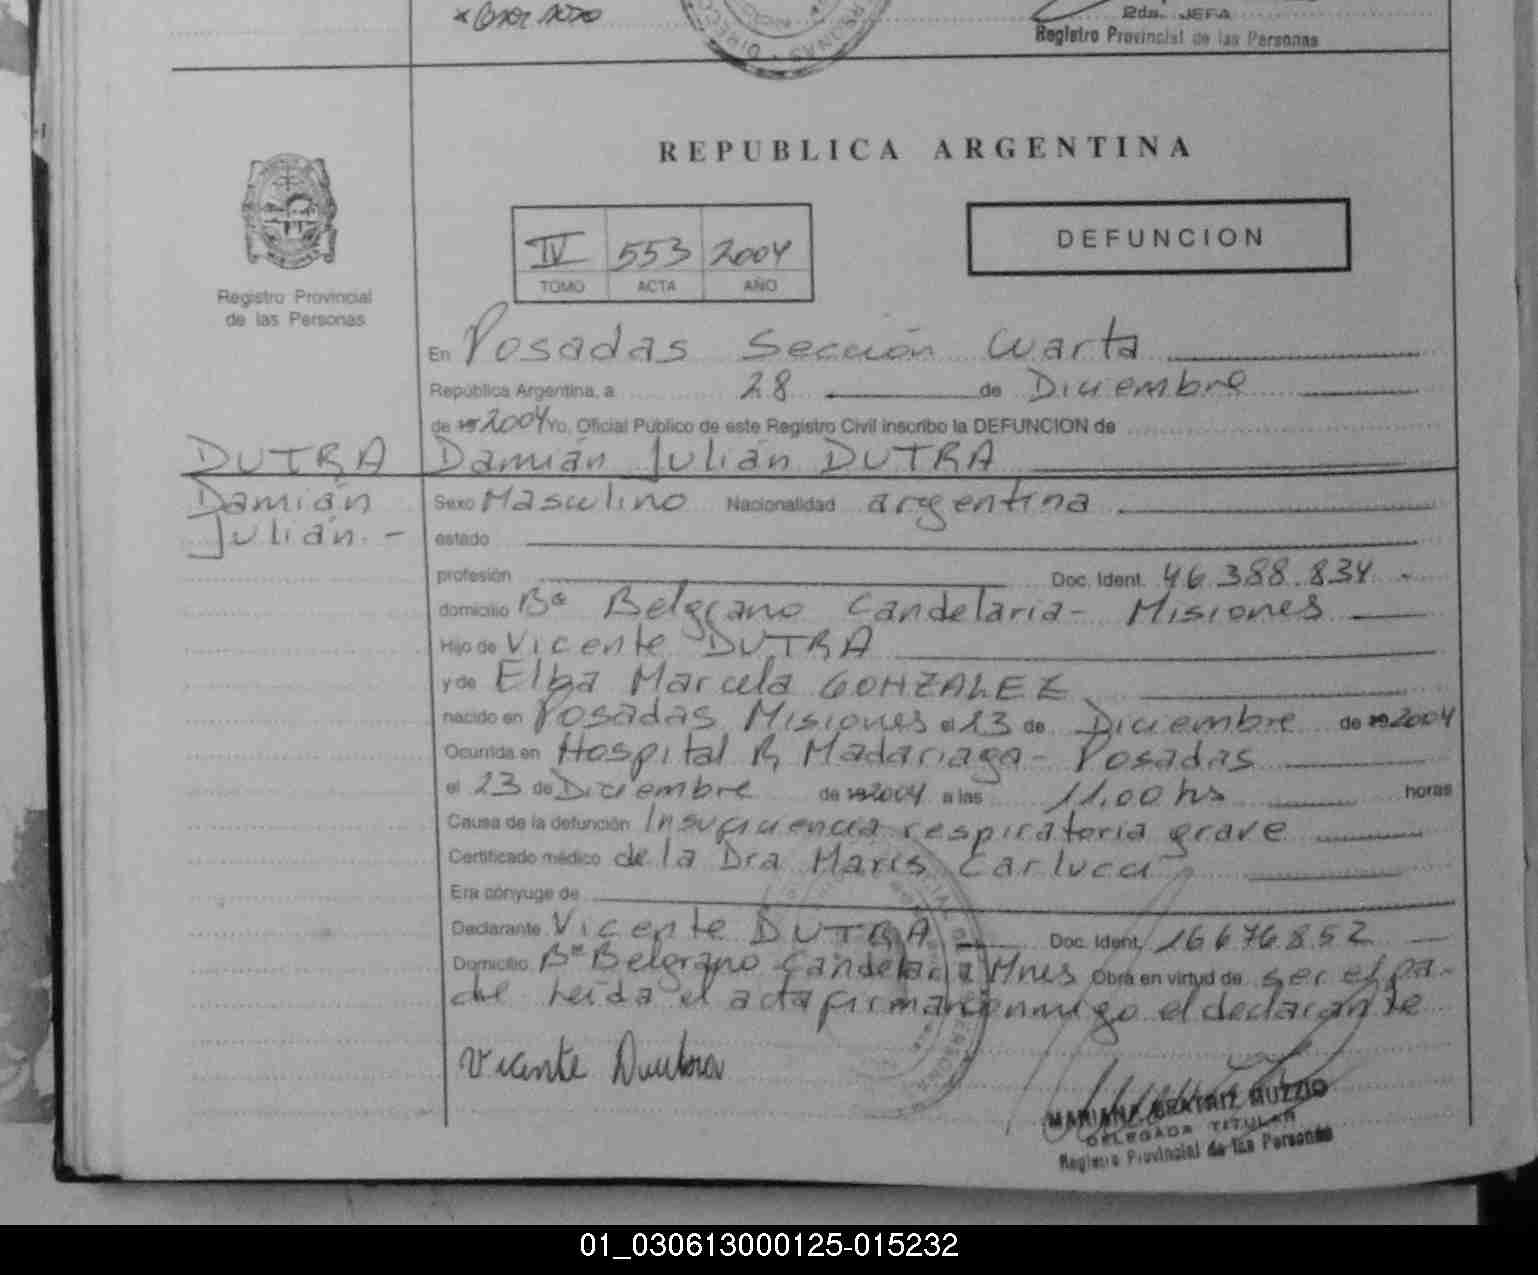 2da. JEFA
Registro Provincial de las Personas
REPUBLICA ARGENTINA
IV 553 2004
TOMO ACTA AÑO
DEFUNCION
Registro Provincial
de las Personas
En Posadas Sección Cuarta
República Argentina, a 28 de Diciembre
de 19 2004 Yo, Oficial Público de este Registro Civil inscribo la DEFUNCION de
DUTRA Damián Julián DUTRA
Damián
Julián.-
Sexo Masculino Nacionalidad argentina
estado
profesión Doc. Ident. 46.388.834 -
domicilio Bº Belgrano Candelaria - Misiones
Hijo de Vicente DUTRA
y de Elba Marcela GONZALEZ
nacido en Posadas Misiones el 23 de Diciembre de 19 2004
Ocurrida en Hospital R Madariaga - Posadas
el 23 de Diciembre de 19 2004 a las 11,00 hs horas
Causa de la defunción Insuficiencia respiratoria grave
Certificado médico de la Dra Maris Carlucci
Era cónyuge de
Declarante Vicente DUTRA Doc. Ident. 16676.852
Domicilio Bº Belgrano Candelaria Mnes Obra en virtud de ser el pa-
dre Leída el acta firma conmigo el declarante
Vicente Duutra
MARIANA BEATRIZ MUZZIO
DELEGADA TITULAR
Registro Provincial de las Personas
01_030613000125-015232